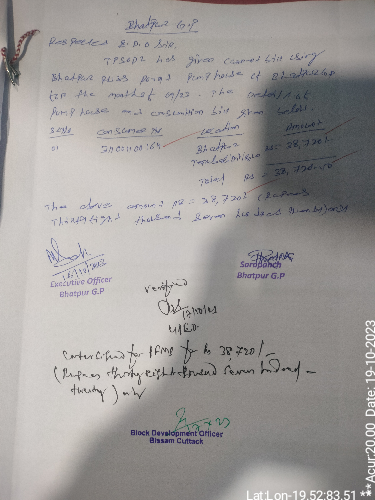 Bhatpur G.P
Respected B.D.O Sir,
TPSODL has given current bill
Bhatpur PWS pump house of Bhatpur G.P
for the month of 09/23. The details of
pump house and consumption bill given below.
Sl.No Consumer No Location Amount
01 Bhatpur Rs = 38,720/-
Total Rs = 38,720=00
The above amount Rs = 38,720/- (Rupees
Thirty eight thousand seven hundred twenty) only
Executive Officer
Bhatpur G.P
Sarapanch
Bhatpur G.P
Verified
Countersigned for PFMS for Rs 38,720/-
(Rupees thirty eight thousand seven hundred
twenty) only
Block Development Officer
Bissam Cuttack
Lat:Lon-19.52:83.51 **Acur:20.00 Date: 19-10-2023